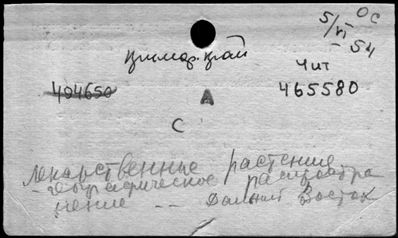 5/VI ОС
- 54
Примор. край
Чит
404650
465580
А
С
Лекарственные растения
- географическое распростра
нение -- Дальний Восток